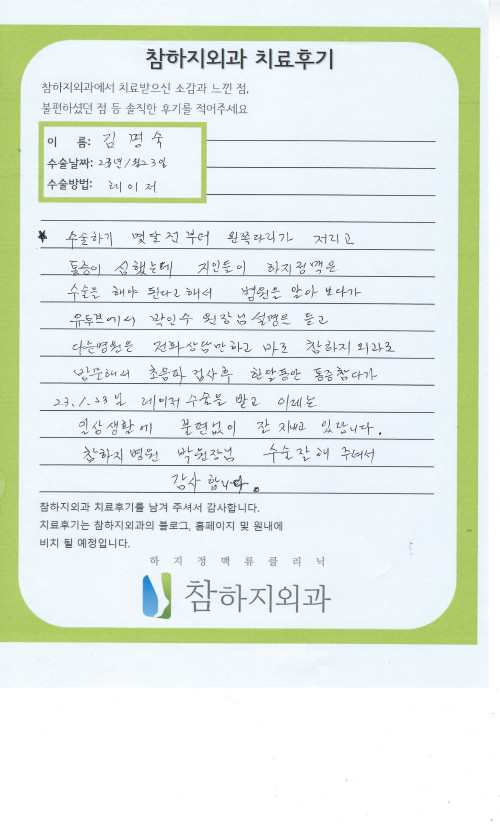 참하지외과 치료후기
참하지외과에서 치료받으신 소감과 느낀 점,
불편하셨던 점 등 솔직한 후기를 적어주세요
이 름: 김명숙
수술날짜: 23년 1월 23일
수술방법: 레이저
* 수술하기 몇달전부터 왼쪽다리가 저리고
통증이 심했는데 지인들이 하지정맥은
수술을 해야 된다고해서 병원을 알아 보다가
유두브에서 박인수 원장님 설명을 듣고
다른병원은 전화상담만하고 바로 참하지외과로
방문해서 초음파 검사후 한달동안 통증참다가
23.1.23일 레이저 수술을 받고 이제는
일상생활에 불편없이 잘 지내고 있답니다.
참하지병원 박원장님 수술잘해 주셔서
감사합니다.
참하지외과 치료후기를 남겨 주셔서 감사합니다.
치료후기는 참하지외과의 블로그, 홈페이지 및 원내에
비치 될 예정입니다.
하지정맥류클리닉
참하지외과